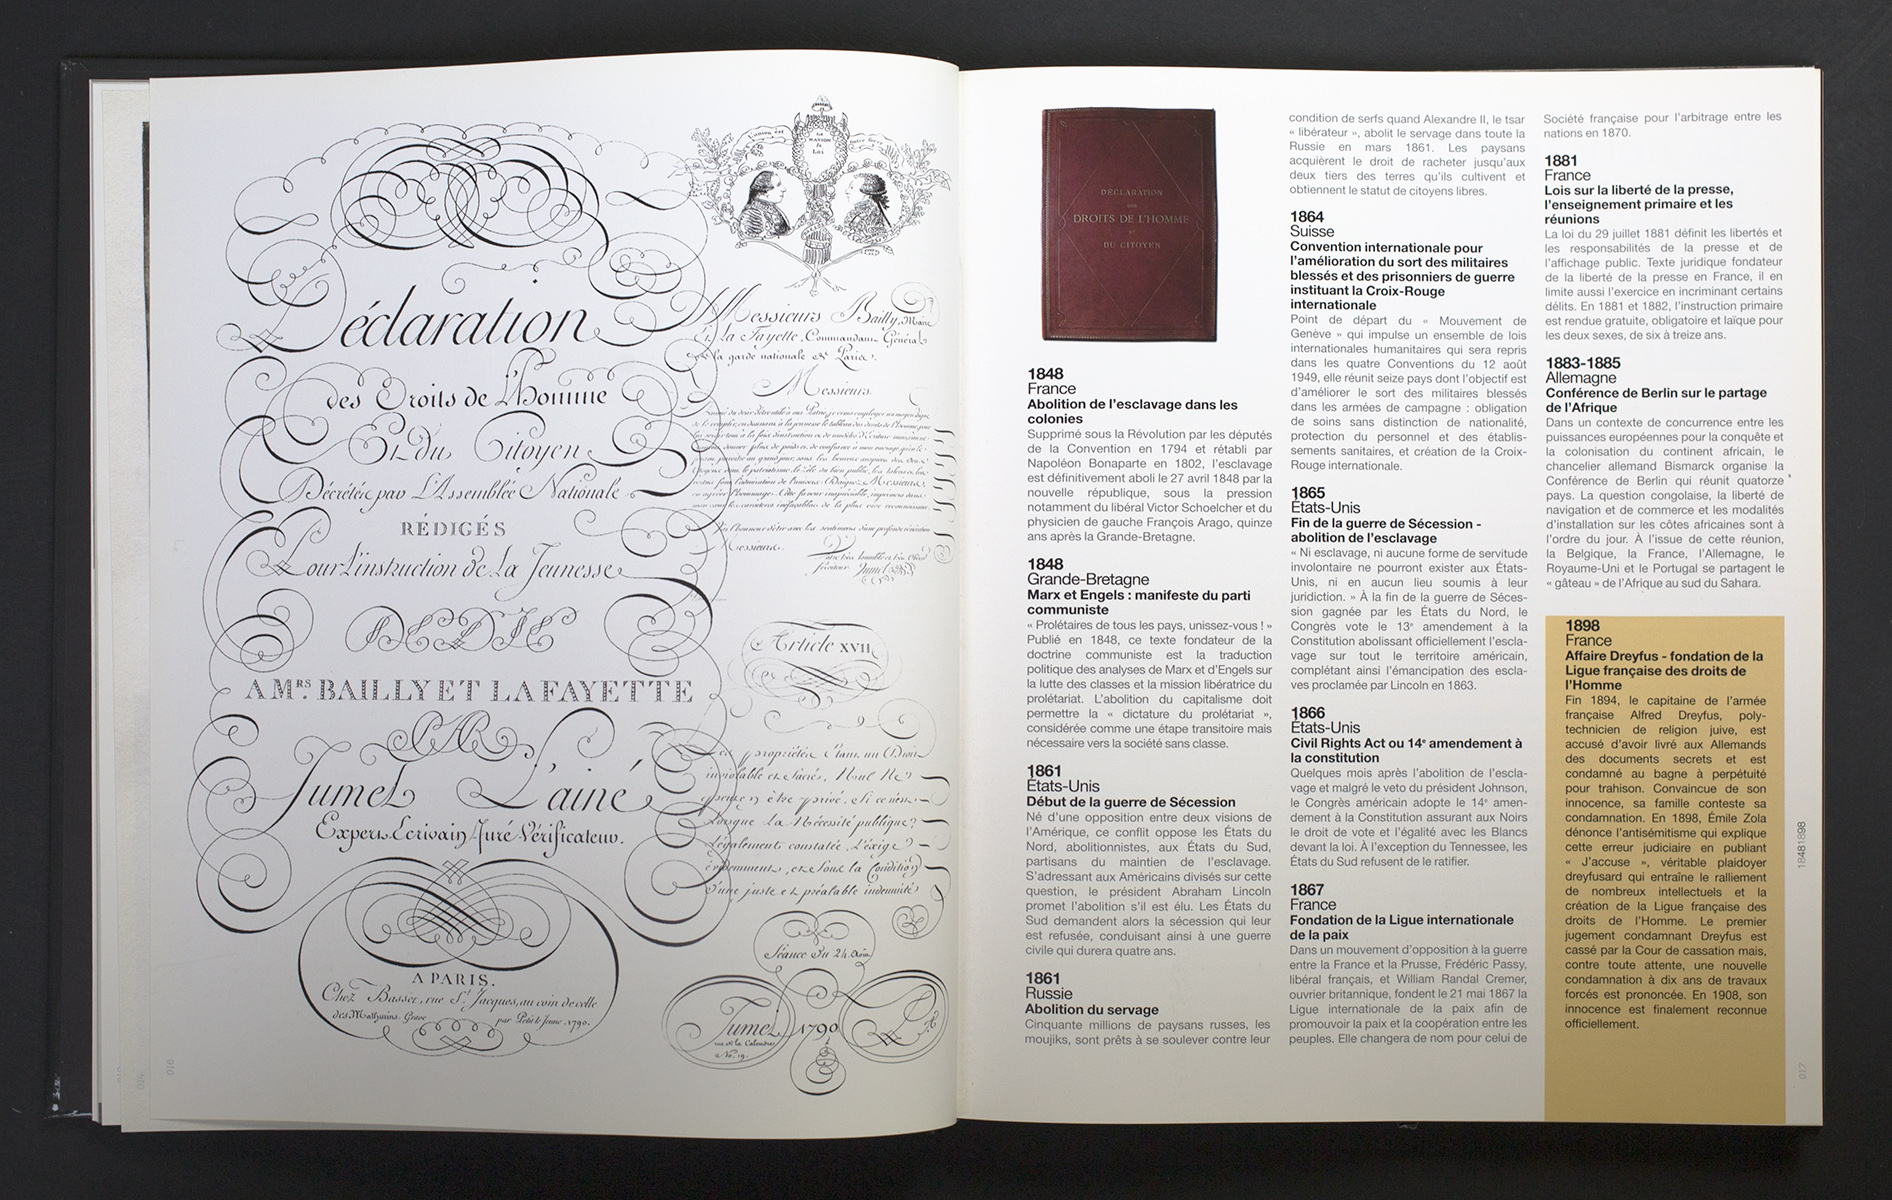 Déclaration
des Droits de L'homme
Et Du Citoyen
Décrétés par L'Assemblée Nationale
RÉDIGÉS
Pour L'instruction de La Jeunesse
DÉDIÉ
A MRS. BAILLY ET LA FAYETTE
PAR
Jumel L'ainé
Expert Ecrivain Juré Vérificateur.
A PARIS.
Chez Basset, rue St. Jacques, au coin de celle
des Mathurins. Gravé par Petit le Jeune. 1790.
016
014
LA
NATION
la
Loi
Messieurs Bailly, Maire
Et La Fayette, Commandant Général
de la garde nationale de Paris.
Messieurs.
Messieurs.
Jumel
Article XVII
Les propriétés étant un Droit
inviolable et Sacré, Nul Ne
peut en être privé, Si ce n'est
Lorsque La Nécessité publique,
Légalement constatée, L'éxige
évidemment, et Sous la Condition
d'une juste et préalable indemnité
Séance du 24. Août
Jumel 1790
rue de la Calendre
No. 19.
DÉCLARATION
DES
DROITS DE L'HOMME
ET
DU CITOYEN
1848
France
Abolition de l'esclavage dans les
colonies
Supprimé sous la Révolution par les députés
de la Convention en 1794 et rétabli par
Napoléon Bonaparte en 1802, l'esclavage
est définitivement aboli le 27 avril 1848 par la
nouvelle république, sous la pression
notamment du libéral Victor Schoelcher et du
physicien de gauche François Arago, quinze
ans après la Grande-Bretagne.
1848
Grande-Bretagne
Marx et Engels : manifeste du parti
communiste
« Prolétaires de tous les pays, unissez-vous ! »
Publié en 1848, ce texte fondateur de la
doctrine communiste est la traduction
politique des analyses de Marx et d'Engels sur
la lutte des classes et la mission libératrice du
prolétariat. L'abolition du capitalisme doit
permettre la « dictature du prolétariat »,
considérée comme une étape transitoire mais
nécessaire vers la société sans classe.
1861
États-Unis
Début de la guerre de Sécession
Né d'une opposition entre deux visions de
l'Amérique, ce conflit oppose les États du
Nord, abolitionnistes, aux États du Sud,
partisans du maintien de l'esclavage.
S'adressant aux Américains divisés sur cette
question, le président Abraham Lincoln
promet l'abolition s'il est élu. Les États du
Sud demandent alors la sécession qui leur
est refusée, conduisant ainsi à une guerre
civile qui durera quatre ans.
1861
Russie
Abolition du servage
Cinquante millions de paysans russes, les
moujiks, sont prêts à se soulever contre leur
condition de serfs quand Alexandre II, le tsar
« libérateur », abolit le servage dans toute la
Russie en mars 1861. Les paysans
acquièrent le droit de racheter jusqu'aux
deux tiers des terres qu'ils cultivent et
obtiennent le statut de citoyens libres.
1864
Suisse
Convention internationale pour
l'amélioration du sort des militaires
blessés et des prisonniers de guerre
instituant la Croix-Rouge
internationale
Point de départ du « Mouvement de
Genève » qui impulse un ensemble de lois
internationales humanitaires qui sera repris
dans les quatre Conventions du 12 août
1949, elle réunit seize pays dont l'objectif est
d'améliorer le sort des militaires blessés
dans les armées de campagne : obligation
de soins sans distinction de nationalité,
protection du personnel et des établis-
sements sanitaires, et création de la Croix-
Rouge internationale.
1865
États-Unis
Fin de la guerre de Sécession -
abolition de l'esclavage
« Ni esclavage, ni aucune forme de servitude
involontaire ne pourront exister aux États-
Unis, ni en aucun lieu soumis à leur
juridiction. » À la fin de la guerre de Séces-
sion gagnée par les États du Nord, le
Congrès vote le 13e amendement à la
Constitution abolissant officiellement l'escla-
vage sur tout le territoire américain,
complétant ainsi l'émancipation des escla-
ves proclamée par Lincoln en 1863.
1866
États-Unis
Civil Rights Act ou 14e amendement à
la constitution
Quelques mois après l'abolition de l'escla-
vage et malgré le veto du président Johnson,
le Congrès américain adopte le 14e amen-
dement à la Constitution assurant aux Noirs
le droit de vote et l'égalité avec les Blancs
devant la loi. À l'exception du Tennessee, les
États du Sud refusent de le ratifier.
1867
France
Fondation de la Ligue internationale
de la paix
Dans un mouvement d'opposition à la guerre
entre la France et la Prusse, Frédéric Passy,
libéral français, et William Randal Cremer,
ouvrier britannique, fondent le 21 mai 1867 la
Ligue internationale de la paix afin de
promouvoir la paix et la coopération entre les
peuples. Elle changera de nom pour celui de
Société française pour l'arbitrage entre les
nations en 1870.
1881
France
Lois sur la liberté de la presse,
l'enseignement primaire et les
réunions
La loi du 29 juillet 1881 définit les libertés et
les responsabilités de la presse et de
l'affichage public. Texte juridique fondateur
de la liberté de la presse en France, il en
limite aussi l'exercice en incriminant certains
délits. En 1881 et 1882, l'instruction primaire
est rendue gratuite, obligatoire et laïque pour
les deux sexes, de six à treize ans.
1883-1885
Allemagne
Conférence de Berlin sur le partage
de l'Afrique
Dans un contexte de concurrence entre les
puissances européennes pour la conquête et
la colonisation du continent africain, le
chancelier allemand Bismarck organise la
Conférence de Berlin qui réunit quatorze
pays. La question congolaise, la liberté de
navigation et de commerce et les modalités
d'installation sur les côtes africaines sont à
l'ordre du jour. À l'issue de cette réunion,
la Belgique, la France, l'Allemagne, le
Royaume-Uni et le Portugal se partagent le
« gâteau » de l'Afrique au sud du Sahara.
1898
France
Affaire Dreyfus - fondation de la
Ligue française des droits de
l'Homme
Fin 1894, le capitaine de l'armée
française Alfred Dreyfus, poly-
technicien de religion juive, est
accusé d'avoir livré aux Allemands
des documents secrets et est
condamné au bagne à perpétuité
pour trahison. Convaincue de son
innocence, sa famille conteste sa
condamnation. En 1898, Émile Zola
dénonce l'antisémitisme qui explique
cette erreur judiciaire en publiant
« J'accuse », véritable plaidoyer
dreyfusard qui entraîne le ralliement
de nombreux intellectuels et la
création de la Ligue française des
droits de l'Homme. Le premier
jugement condamnant Dreyfus est
cassé par la Cour de cassation mais,
contre toute attente, une nouvelle
condamnation à dix ans de travaux
forcés est prononcée. En 1908, son
innocence est finalement reconnue
officiellement.
18481898
017